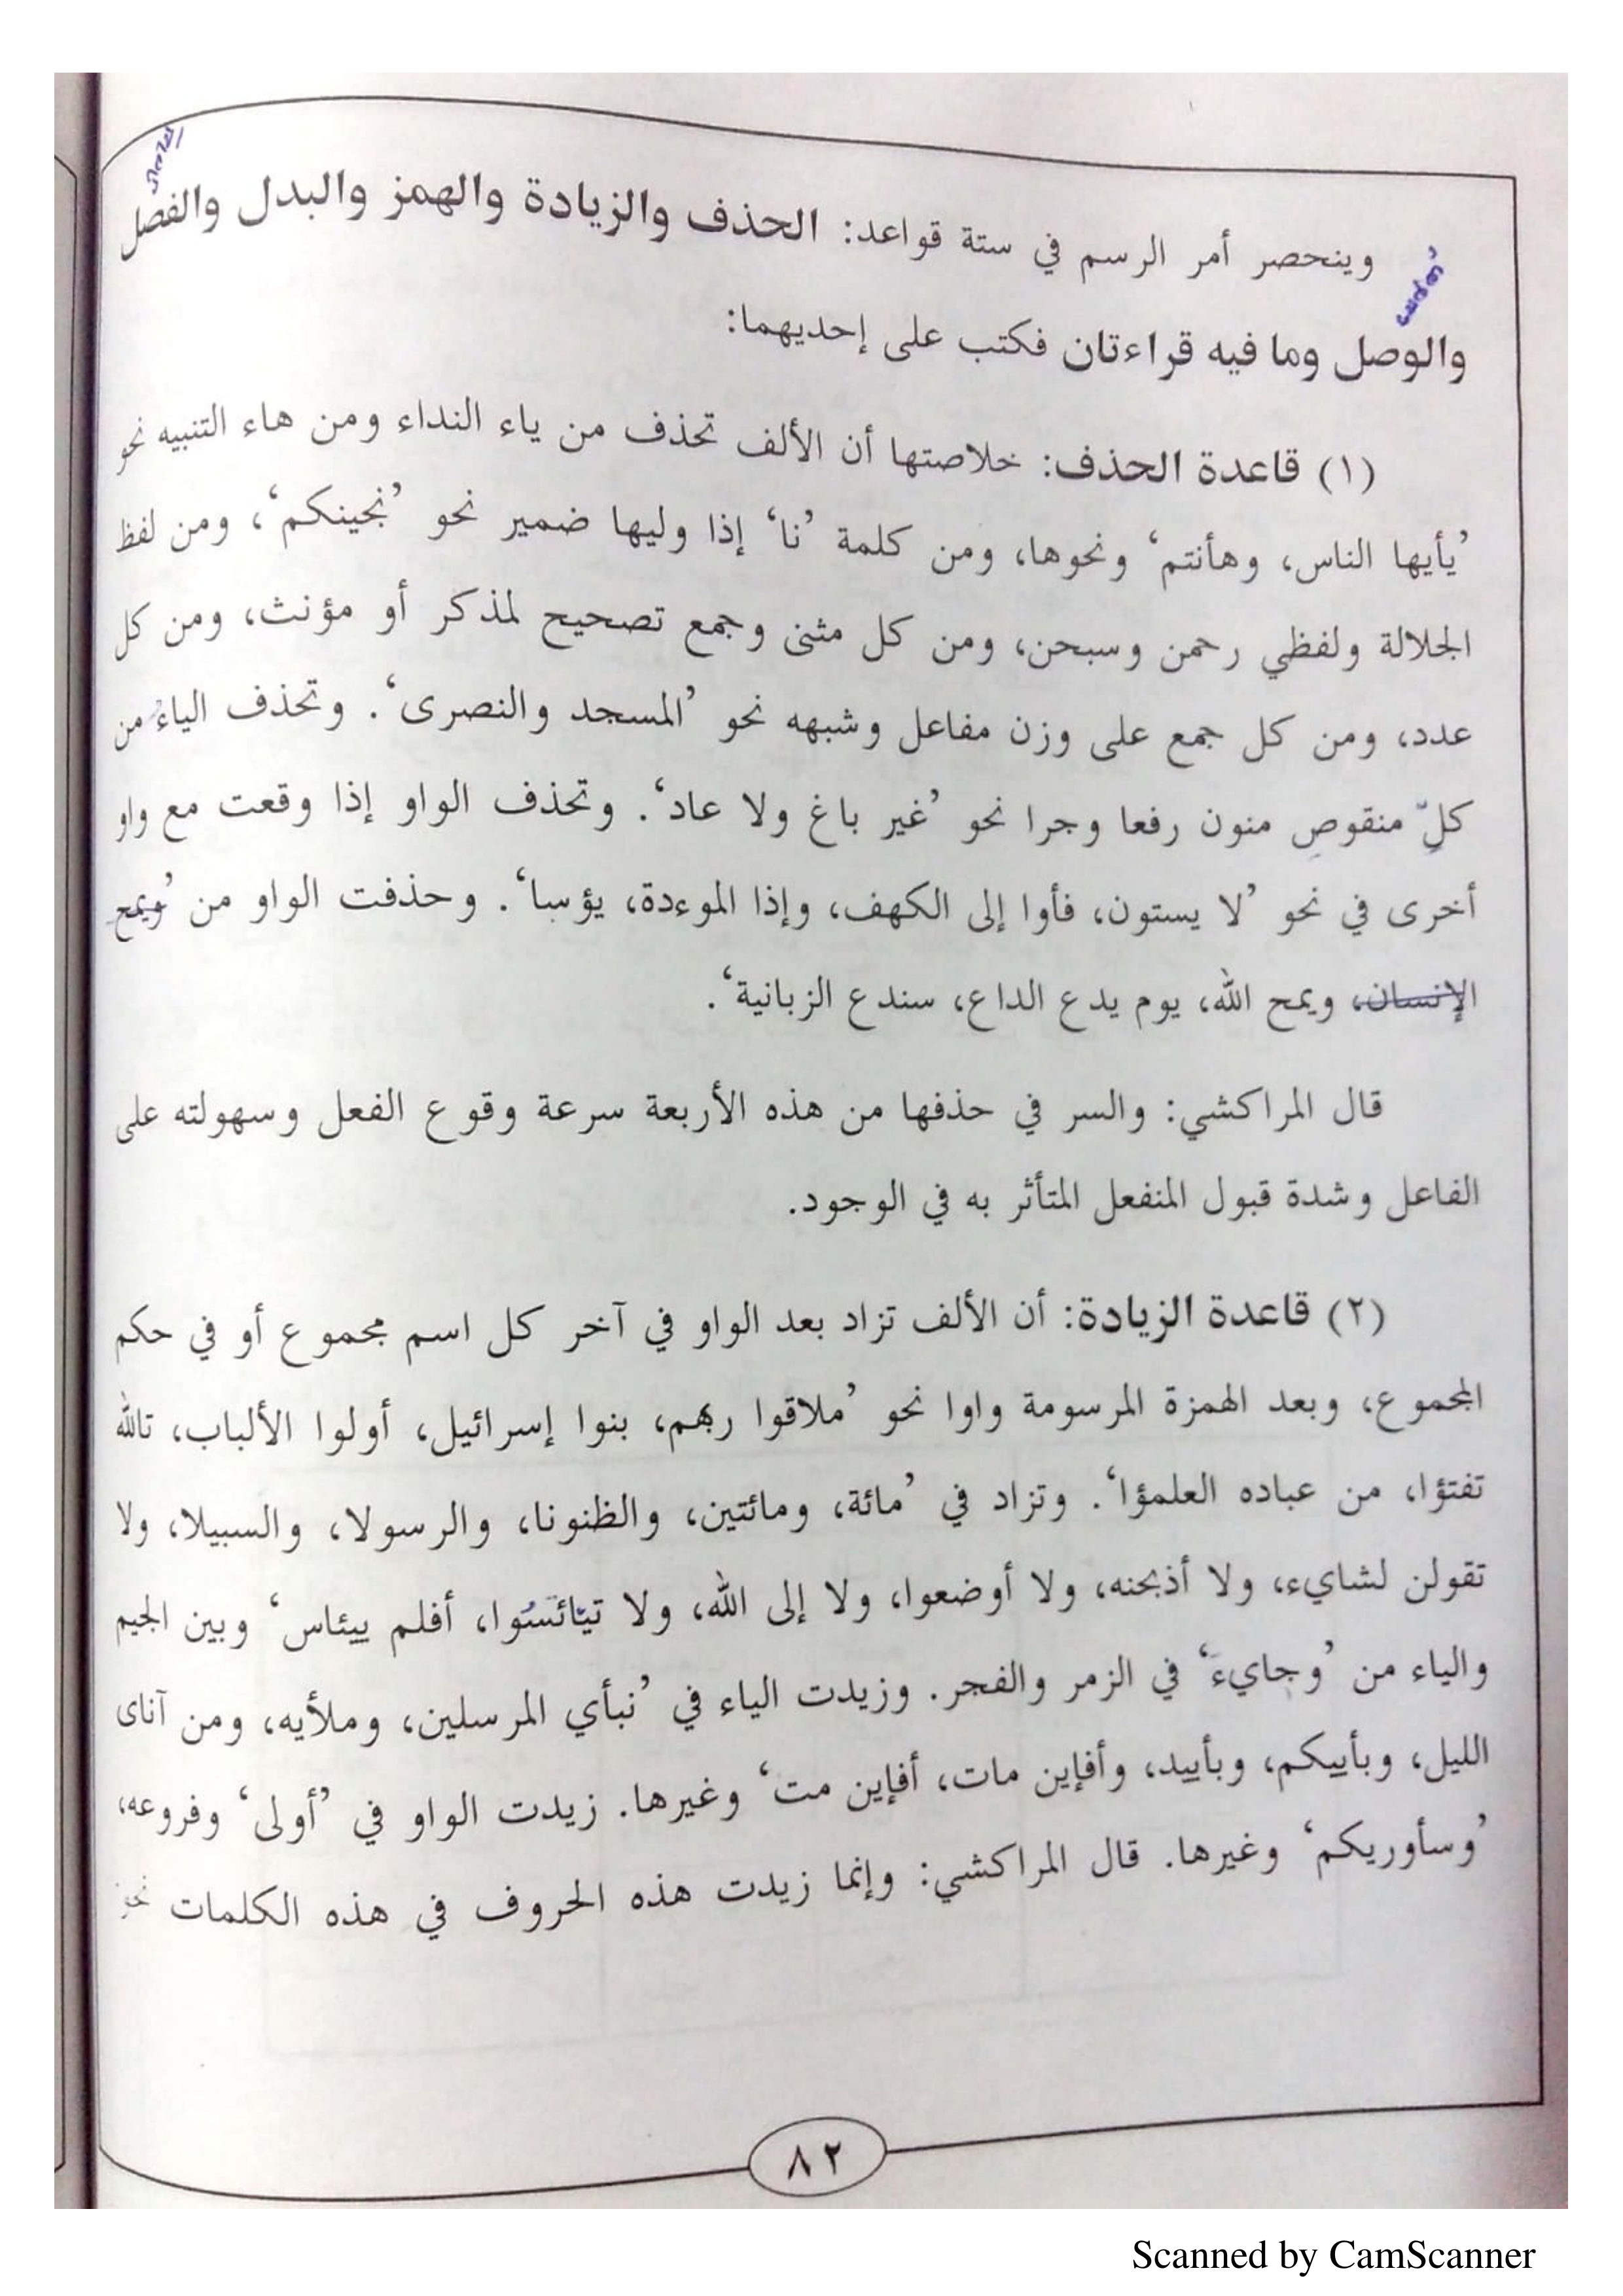 وينحصر أمر الرسم في ستة قواعد: الحذف والزيادة والهمز والبدل والفصل
والوصل وما فيه قراءتان فكتب على إحديهما:
(١) قاعدة الحذف: خلاصتها أن الألف تحذف من ياء النداء ومن هاء التنبيه نحو
’يأيها الناس، وهأنتم‘ ونحوها، ومن كلمة ’نا‘ إذا وليها ضمير نحو ’نجينكم‘، ومن لفظ
الجلالة ولفظي رحمن وسبحن، ومن كل مثنى وجمع تصحيح لمذكر أو مؤنث، ومن كل
عدد، ومن كل جمع على وزن مفاعل وشبهه نحو ’المسجد والنصرى‘. وتحذف الياء من
كلّ منقوصٍ منون رفعا وجرا نحو ’غير باغ ولا عاد‘. وتحذف الواو إذا وقعت مع واو
أخرى في نحو ’لا يستون، فأوا إلى الكهف، وإذا الموءدة، يؤسا‘. وحذفت الواو من ’ويمح
الإنسان، ويمح الله، يوم يدع الداع، سندع الزبانية‘.
قال المراكشي: والسر في حذفها من هذه الأربعة سرعة وقوع الفعل وسهولته على
الفاعل وشدة قبول المنفعل المتأثر به في الوجود.
(٢) قاعدة الزيادة: أن الألف تزاد بعد الواو في آخر كل اسم مجموع أو في حكم
المجموع، وبعد الهمزة المرسومة واوا نحو ’ملاقوا ربهم، بنوا إسرائيل، أولوا الألباب، تالله
تفتؤا، من عباده العلمؤا‘. وتزاد في ’مائة، ومائتين، والظنونا، والرسولا، والسبيلا، ولا
تقولن لشايء، ولا أذبحنه، ولا أوضعوا، ولا إلى الله، ولا تيائسوا، أفلم ييئاس‘ وبين الجيم
والياء من ’وجايءَ‘ في الزمر والفجر. وزيدت الياء في ’نبأي المرسلين، وملأيه، ومن آناى
الليل، وبأييكم، وبأييد، وأفإين مات، أفإين مت‘ وغيرها. زيدت الواو في ’أولى‘ وفروعه،
’وسأوريكم‘ وغيرها. قال المراكشي: وإنما زيدت هذه الحروف في هذه الكلمات نحو
٨٢
Scanned by CamScanner